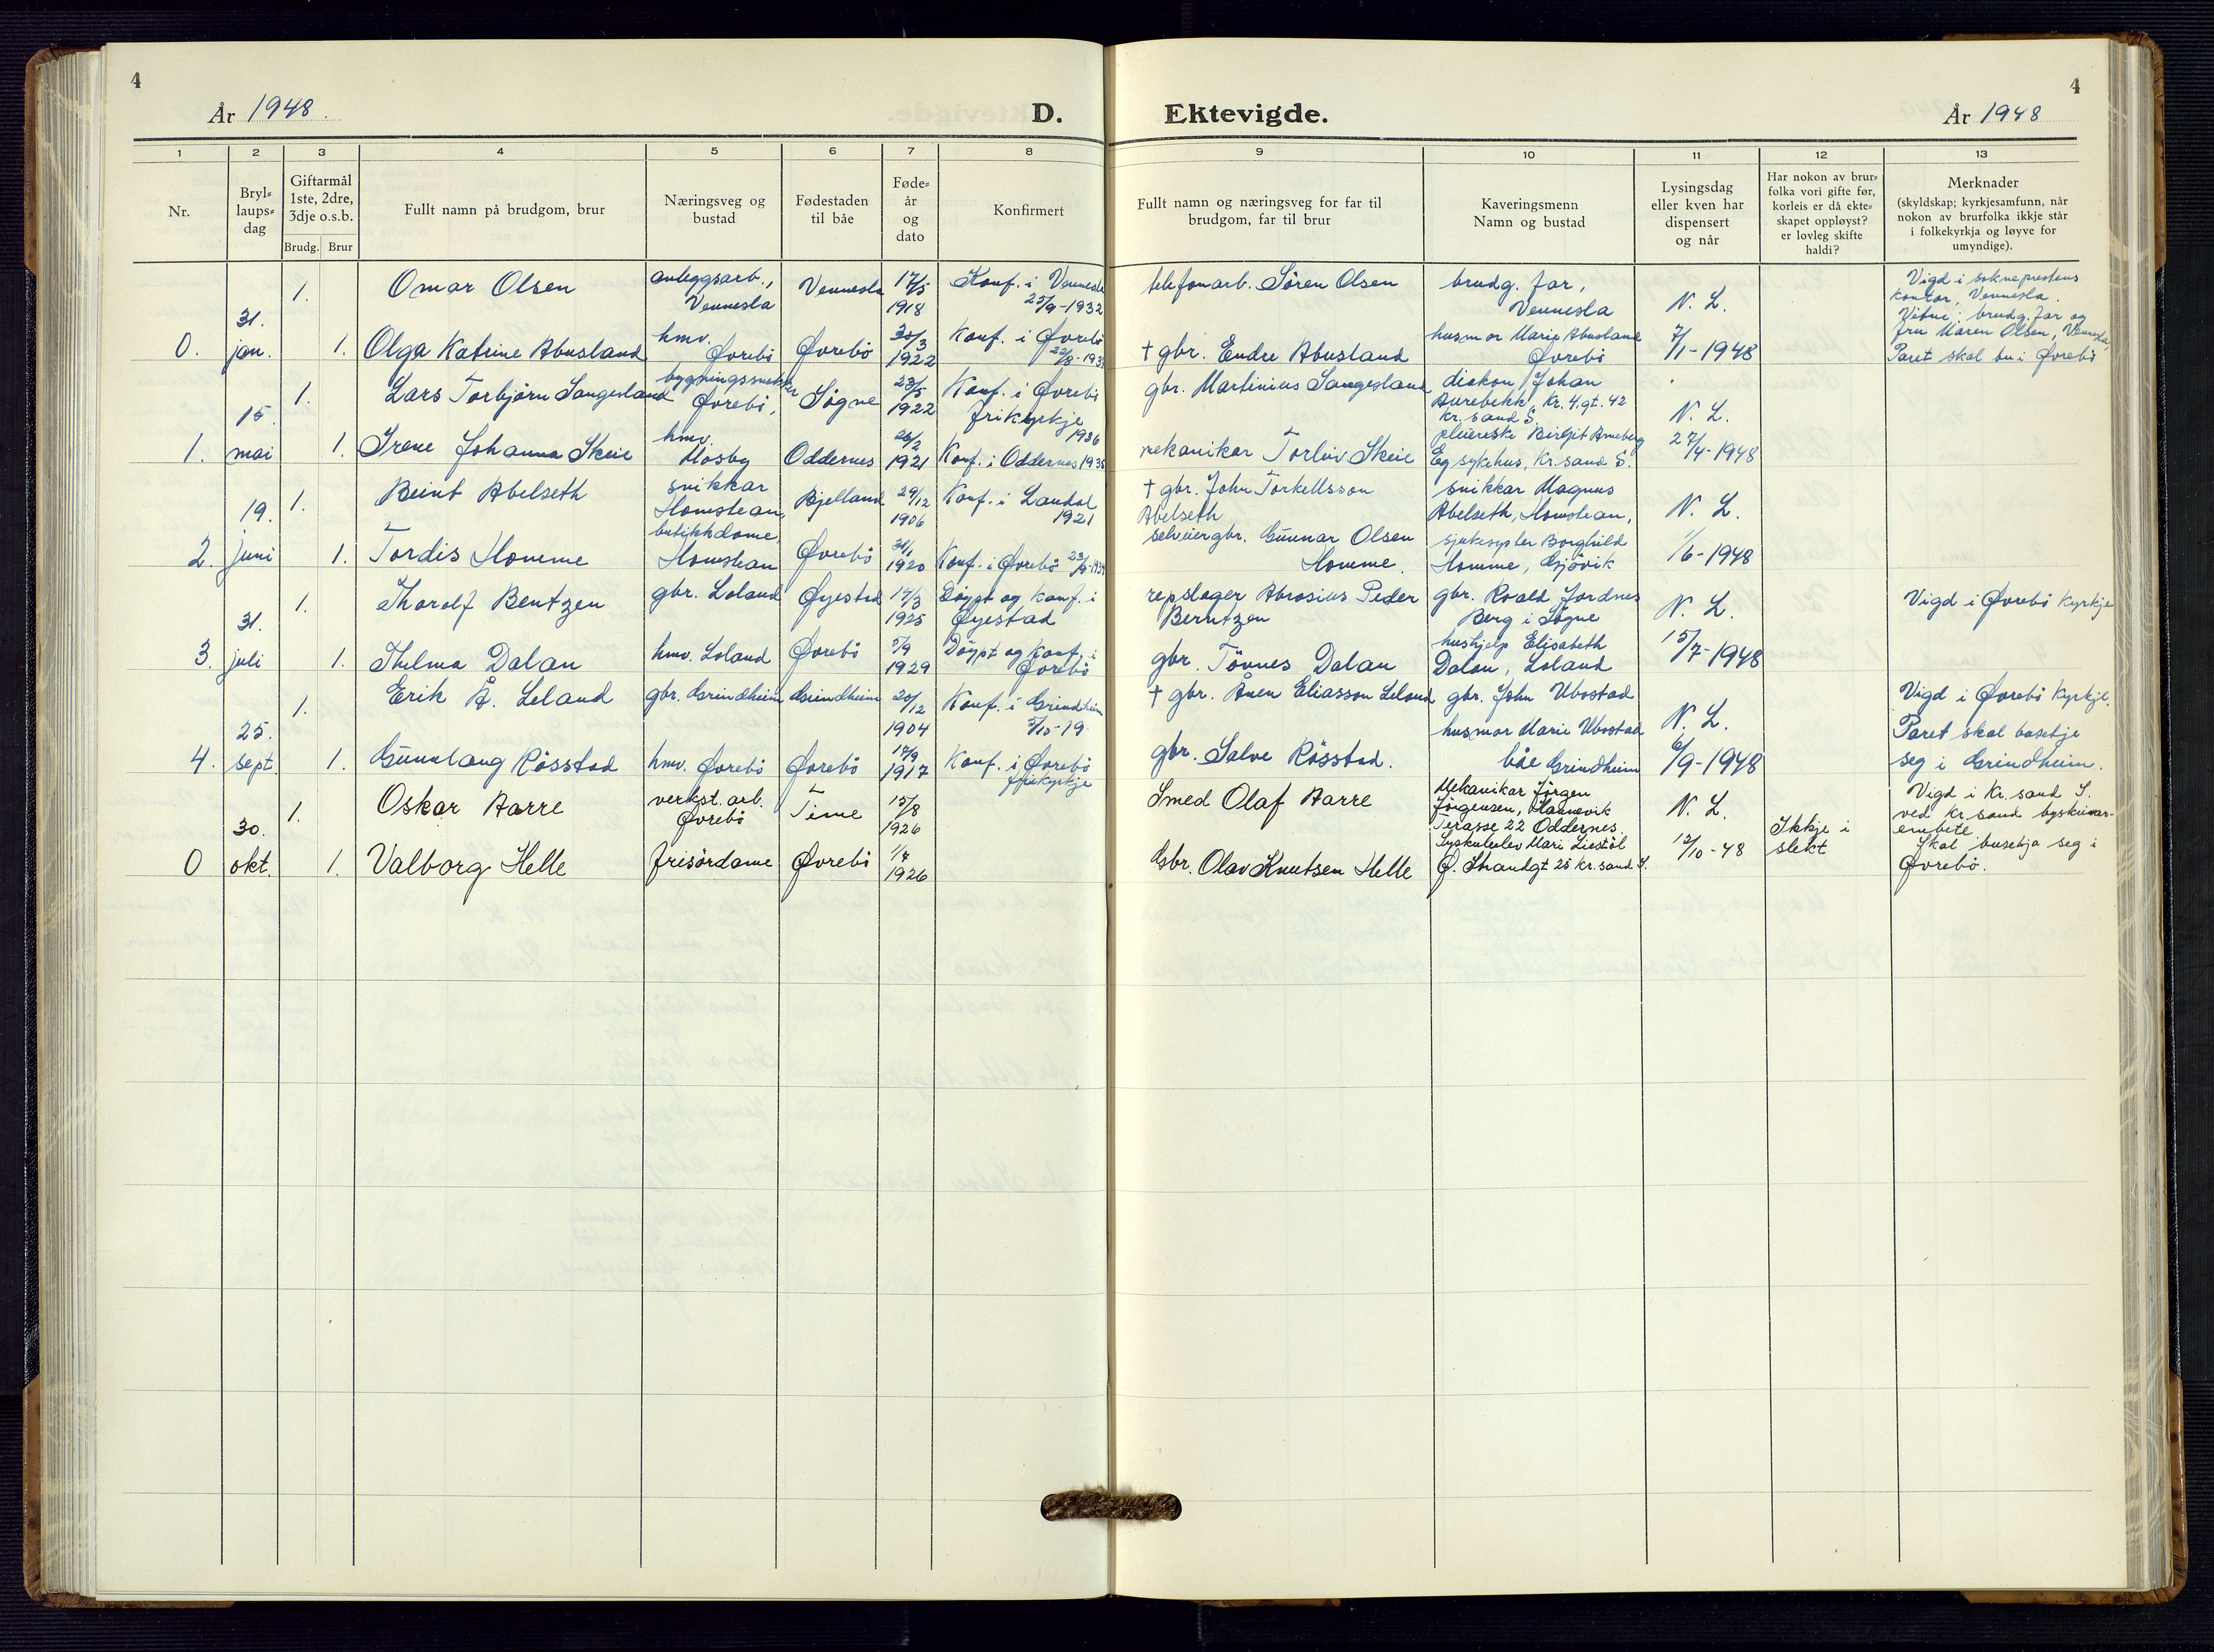 4
År 1948.
D.
Ektevigde.
År 1948
4
1 2 3 4 5 6 7 8 9 10 11 12 13
Nr.
Bryl-
laups-
dag
Giftarmål
1ste, 2dre,
3dje o.s.b.
Brudg. Brur
Fullt namn på brudgom, brur
Næringsveg og
bustad
Fødestaden
til båe
Føde-
år
og
dato
Konfirmert
Fullt namn og næringsveg for far til
brudgom, far til brur
Kaveringsmenn
Namn og bustad
Lysingsdag
eller kven har
dispensert
og når
Har nokon av brur-
folka vori gifte før,
korleis er då ekte-
skapet oppløyst?
er lovleg skifte
haldi?
Merknader
(skyldskap; kyrkjesamfunn, når
nokon av brurfolka ikkje står
i folkekyrkja og løyve for
umyndige).
0.
31.
jan.
1.
Omar Olsen
anleggsarb.,
Vennesla
Vennesla
17/5
1918
Konf. i Vennesla
25/9-1932
telefonarb. Sören Olsen
brudg. far,
Vennesla
N. L.
1.
Olga Katrine Abusland
hmv.
Øvrebö
Øvrebö
30/3
1922
Konf. i Øvrebö
† gbr. Endre Abusland
husmor Marie Abusland
Øvrebö
7/1-1948
Vigd i sokneprestens
kontor, Vennesla.
Vitne: brudg. far og
fru Maren Olsen, Vennesla,
Paret skal bu i Øvrebö
1.
15.
mai
1.
Lars Torbjörn Sangesland
bygningssnekker
Øvrebö,
Søgne
23/5
1922
Konf. i Øvrebö
frikyrkje
1936
gbr. Martinius Sangesland
diakon Johan
Aurebekk, Kr. 4. gt. 42
kr. sand S.
N. L.
1.
Irene Johanna Skeie
hmv.
Mosby
Oddernes
26/2
1921
Konf. i Oddernes 1935
mekanikar Torleiv Skeie
pleiereske Birgit Arneberg
Eg sykehus, Kr. sand S.
27/4-1948
2.
19.
juni
1.
Beint Abelseth
snikkar
Homstean,
Bjelland
29/12
1906
Konf. i Laudal
1921
† gbr. John Torkellsson
Abelseth
snikkar Magnus
Abelseth, Homstean,
N. L.
1.
Tordis Homme
butikkdame,
Homstean
Øvrebö
31/1
1920
Konf. i Øvrebö
selveiergbr. Gunnar Olsen
Homme.
sjukesyster Borghild
Homme, Gjövik
1/6-1948
3.
31.
juli
1.
Thorolf Bentzen
gbr. Loland
Øyestad
14/3
1925
Döypt og konf. i
Øyestad
repslager Abrosius Peder
Berntzen
gbr. Roald Jordnes
Berg i Sögne
N. L.
Vigd i Øvrebö kyrkje
1.
Thelma Dalan
hmv. Loland
Øvrebö
5/9
1929
Döypt og konf. i
Øvrebö
gbr. Tövnes Dalan
hushjelp Elisabeth
Dalan, Loland
15/7-1948
4.
25.
sept.
1.
Erik Å. Leland
gbr. Grindheim
Grindheim
20/12
1904
Konf. i Grindheim
5/10-19
† gbr. Ånen Eliasson Leland
gbr. John Ubostad
husmor Marie Ubostad
båe Grindheim
N. L.
6/9-1948
Vigd i Øvrebö kyrkje.
Paret skal busetje
seg i Grindheim.
1.
Gunnlaug Rösstad
hmv. Øvrebö
Øvrebö
14/9
1917
Konf. i Øvrebö
frikyrkje
gbr. Salve Rösstad.
0
30.
okt.
1.
Oskar Aarre
verkst. arb.
Øvrebö
Time
15/8
1926
Smed Olaf Aarre
Mekanikar Jörgen
Jörgensen, Hannevik
Terasse 22 Oddernes.
N. L.
Ikkje i
slekt
Vigd i Kr. sand S.
ved kr. sand byskrivar-
embete.
Skal busetja seg i
Øvrebö.
1.
Valborg Helle
frisördame
Øvrebö
1926
Gbr. Olav Knutsen Helle
Syskuleelev Mari Liestöl
Ø. Strandgt 25 kr. sand S.
12/10-48